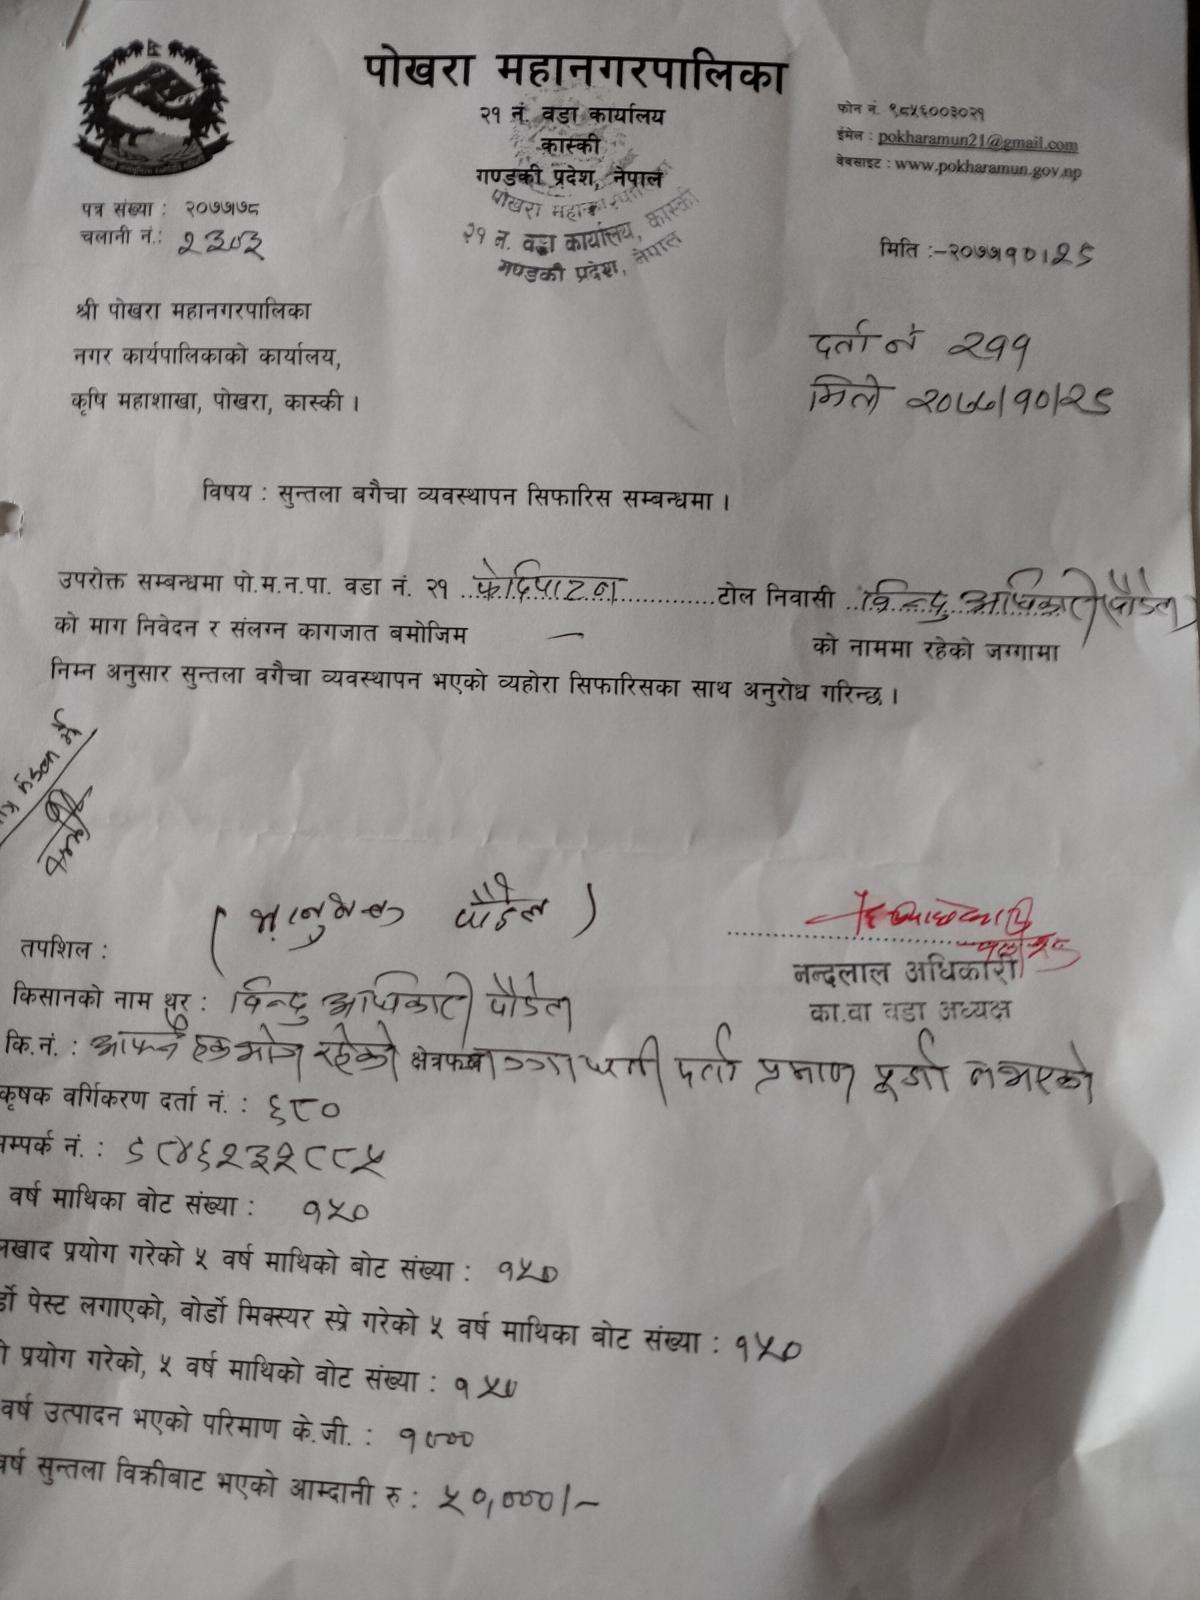 पोखरा महानगरपालिका
२१ नं. वडा कार्यालय
कास्की
गण्डकी प्रदेश, नेपाल
फोन नं. ९८५६००३०२१
ईमेल : pokharamun21@gmail.com
वेबसाइट : www.pokharamun.gov.np
पोखरा महानगरपालिका
२१ नं. वडा कार्यालय, कास्की
गण्डकी प्रदेश, नेपाल
पत्र संख्या : २०७७।७८
चलानी नं.: २३०३
मिति :-२०७७।१०।२९
श्री पोखरा महानगरपालिका
नगर कार्यपालिकाको कार्यालय,
कृषि महाशाखा, पोखरा, कास्की ।
दर्ता नं २११
मिति २०७७/१०/२९
विषय : सुन्तला बगैचा व्यवस्थापन सिफारिस सम्बन्धमा ।
उपरोक्त सम्बन्धमा पो.म.न.पा. वडा नं. २१ फेदिपाटन टोल निवासी विन्दु अधिकारी (पौडेल)
को माग निवेदन र संलग्न कागजात बमोजिम — को नाममा रहेको जग्गामा
निम्न अनुसार सुन्तला वगैचा व्यवस्थापन भएको व्यहोरा सिफारिसका साथ अनुरोध गरिन्छ ।
(भानुभक्त पौडेल)
तपशिल :
नन्दलाल अधिकारी
का.वा वडा अध्यक्ष
किसानको नाम थर : विन्दु अधिकारी पौडेल
कि.नं. : आफ्नै हकभोग रहेको क्षेत्रफल दर्ता प्रमाण पूर्जा नभएको
कृषक वर्गिकरण दर्ता नं. : ६८०
सम्पर्क नं. : ९८४६२३२८८५
वर्ष माथिका वोट संख्या : १५०
लखाद प्रयोग गरेको ५ वर्ष माथिको बोट संख्या : १५०
र्डो पेस्ट लगाएको, वोर्डो मिक्स्यर स्प्रे गरेको ५ वर्ष माथिका बोट संख्या : १५०
प्रयोग गरेको, ५ वर्ष माथिको वोट संख्या : १५०
वर्ष उत्पादन भएको परिमाण के.जी. : १०००
वर्ष सुन्तला विक्रीबाट भएको आम्दानी रु : ५०,०००/-